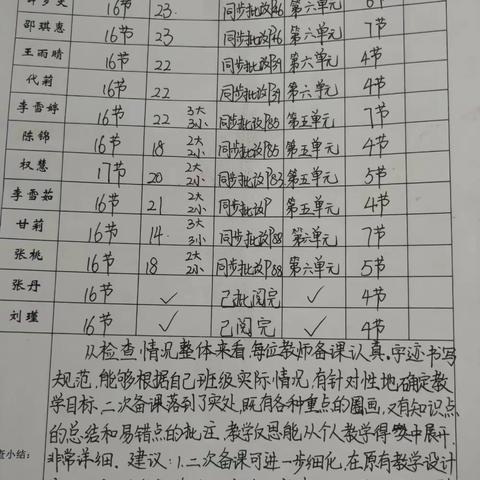 16节 23 同步批改P46 第六单元 6节
邵琪惠 16节 23 同步批改P46 第六单元 7节
王雨晴 16节 22 同步批改P39 第六单元 4节
代莉 16节 22 同步批改P39 第六单元 4节
李雪婷 16节 22 3大3小 同步批改P85 第五单元 7节
陈锦 16节 18 2大2小 同步批改P85 第五单元 4节
权慧 17节 20 2大2小 同步批改P83 第五单元 5节
李雪茹 16节 21 2大2小 同步批改P 第五单元 4节
甘莉 16节 14 3大3小 同步批改P88 第六单元 7节
张桃 16节 18 2大2小 同步批改P88 第六单元 5节
张丹 16节 ✓ 已批阅完 ✓ 4节
刘瑾 16节 ✓ 已阅完 ✓ 4节
从检查情况整体来看,每位教师备课认真,字迹书写
规范,能够根据自己班级实际情况,有针对性地确定教
学目标,二次备课落到了实处,既有各种重点的圈画,又有知识点
的总结和易错点的批注.教学反思能从个人教学得失中展开,
查小结: 非常详细. 建议:1.二次备课可进一步细化,在原有教学设计